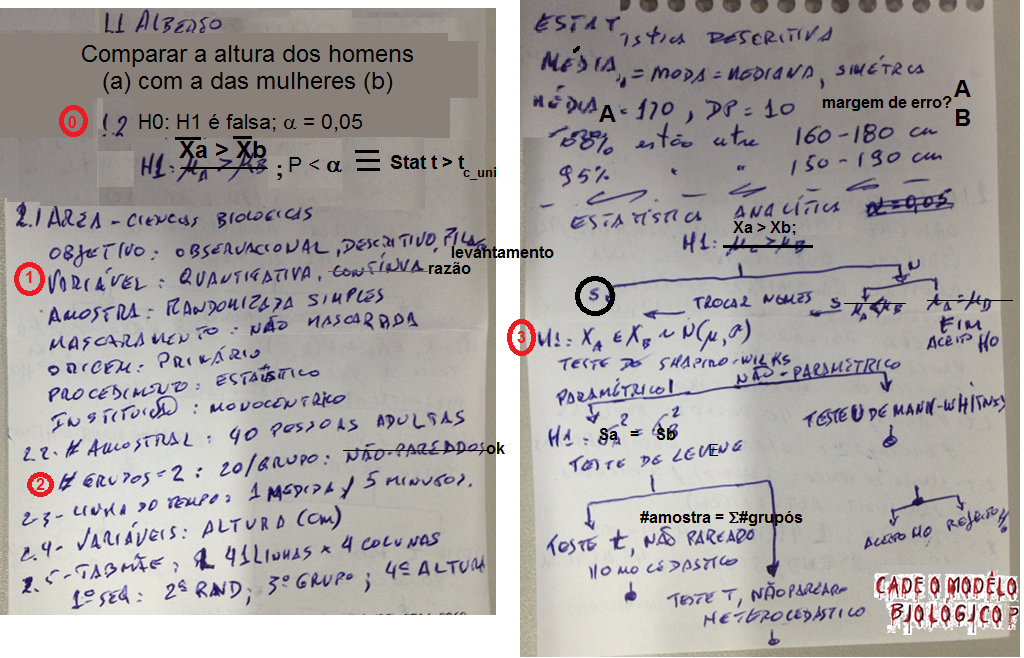 L1 ALBERTO
Comparar a altura dos homens
(a) com a das mulheres (b)
0 1.2 H0: H1 é falsa; α = 0,05
Xa > Xb
H1: μA > μB ; P < α ≡ Stat t > t c_uni
2.1 AREA - CIENCIAS BIOLOGICAS
OBJETIVO: OBSERVACIONAL, DESCRITIVO,
levantamento
1 VARIÁVEL: QUANTITATIVA, CONTÍNUA razão
AMOSTRA: RANDOMIZADA SIMPLES
MASCARAMENTO: NÃO MASCARADA
ORIGEM: PRIMÁRIO
PROCEDIMENTO: ESTATÍSTICO
INSTITUIÇÃO: MONOCENTRICO
2.2 # AMOSTRAL: 40 PESSOAS ADULTAS
2 # GRUPOS = 2: 20/GRUPO: NÃO-PAREADOS ok
2.3 - LINHA DO TEMPO: 1 MEDIDA / 5 MINUTOS.
2.4 - VARIÁVEIS: ALTURA (cm)
2.5 - TABMÃE: 41 LINHAS x 4 COLUNAS
1º SEQ: 2º RND; 3º GRUPO; 4º ALTURA
ESTATÍSTICA DESCRITIVA
MÉDIA = MODA = MEDIANA, SIMÉTRICA
MÉDIA A = 170, DP = 10 margem de erro? A
B
68% estão entre 160-180 cm
95% " " 150-190 cm
ESTATÍSTICA ANALÍTICA α = 0,05
Xa > Xb;
H1: μA > μB
N
S TROCAR NOMES S μA < μB μA = μB
FIM
ACEITO H0
3 H1: XA E XB ~ N(μ, σ)
TESTE DE SHAPIRO-WILKS
PARAMÉTRICO NÃO-PARAMÉTRICO
TESTE U DE MANN-WHITNEY
H1: Sa² = Sb²
TESTE DE LEVENE E
#amostra = Σ#grupós
TESTE t, NÃO PAREADO
HOMOCEDASTICO
ACEITO H0 REJEITO H0
TESTE T, NÃO PAREADO
HETEROCEDÁSTICO
CADE O MODÉLO
BIOLÓGICO?